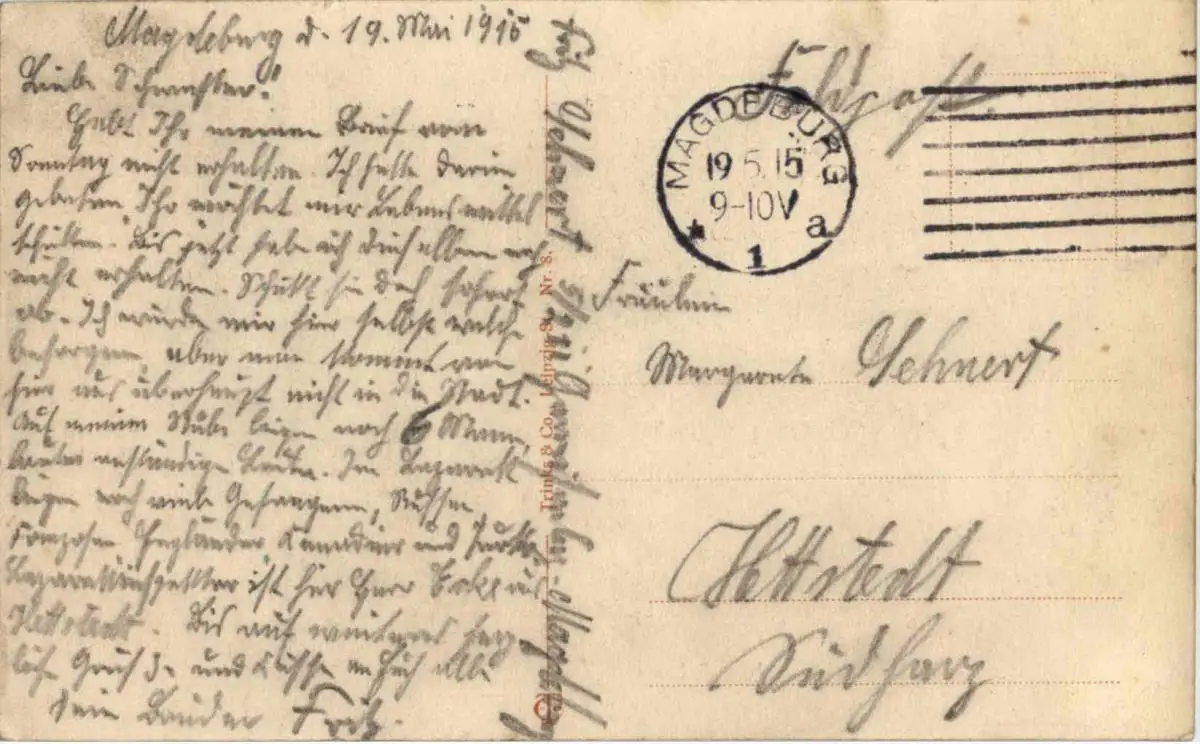 Magdeburg d. 19. Mai 1915
Liebe Schwester!
Habt Ihr meinen Brief vom
Sonntag nicht erhalten. Ich hatte darin
gebeten Ihr möchtet mir Lebensmittel
schicken. Bis jetzt habe ich von allem noch
nicht erhalten. Schickt sie doch sofort
ab. Ich würde mir hier selbst welche
besorgen, aber man kommt von
hier aus überhaupt nicht in die Stadt.
Auf meiner Stube liegen noch 6 Mann,
lauter anständige Leute. Im Lazarett
liegen noch viele Gefangene, Russen,
Franzosen Engländer Kanadier und
Lazarettinspektor ist hier Herr aus
Hettstedt. Bis auf weiteres herz
liche Grüße und Küsse an Euch alle
Dein Bruder Fritz.
Fritz Sehnert Magdeburg
Trinks & Co., Leipzig Nr. 8.
Feldpost.
MAGDEBURG
19.5.15
9-10V
* 1 a
Fräulein
Margarete Sehnert
Hettstedt
Südharz